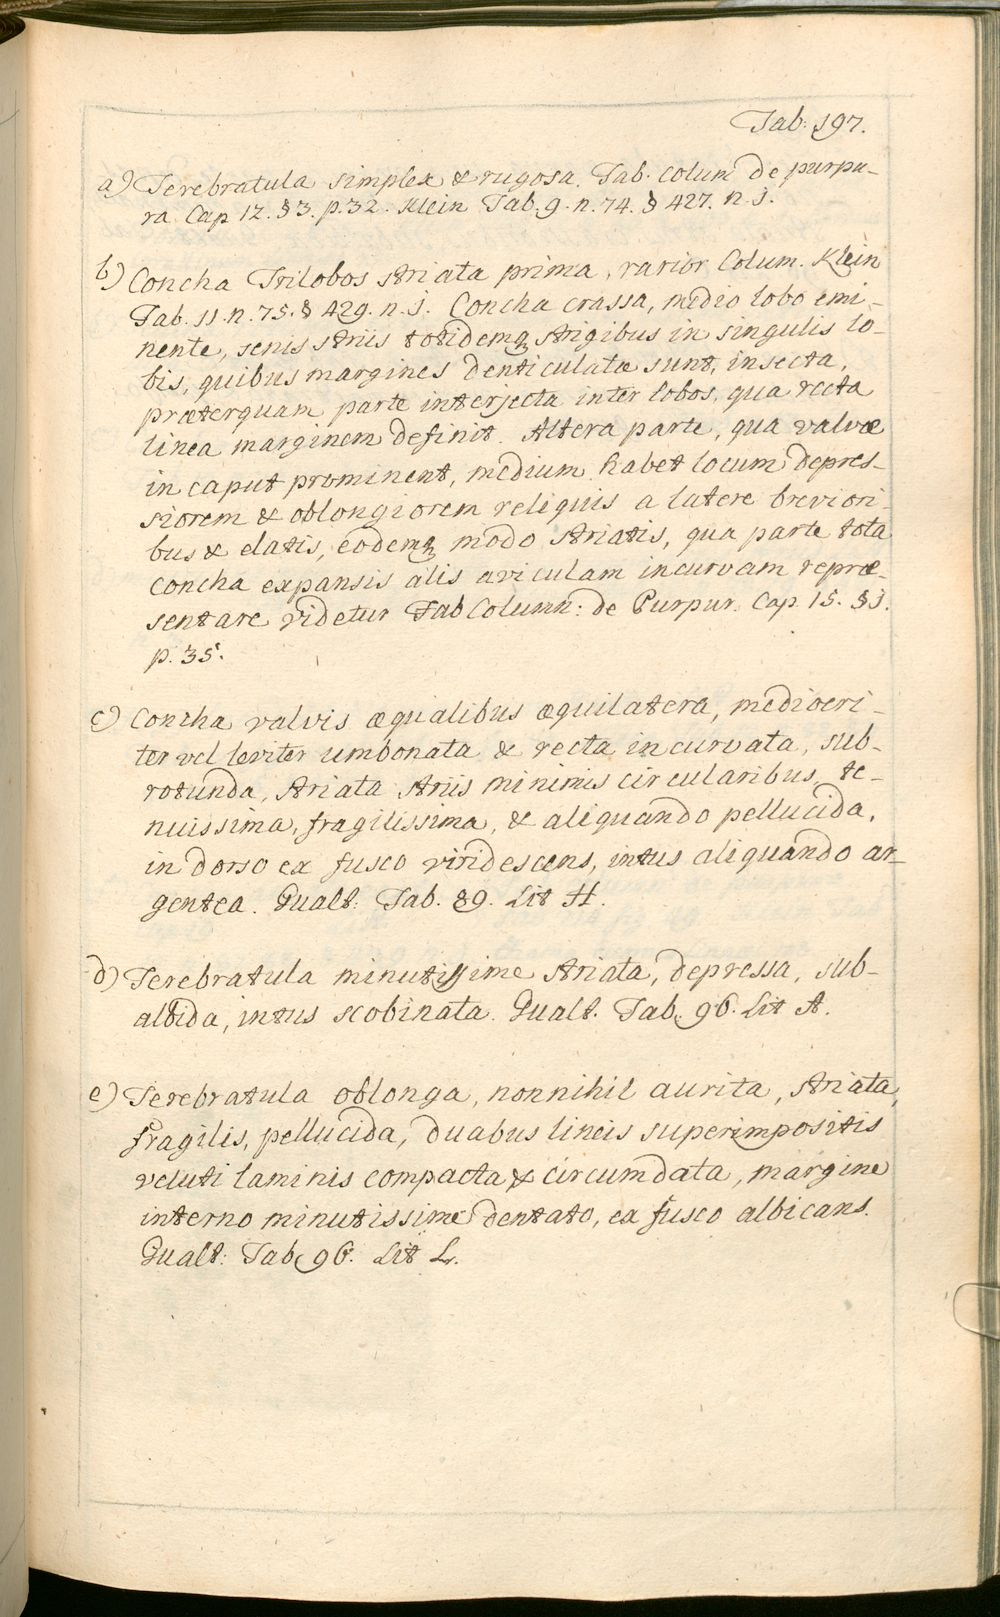 Tab. 197.
a) Terebratula simplex & rugosa. Tab. colum de purpu-
ra Cap 12. § 3. p. 32. Klein Tab. 9. n. 74. § 427. n. j.
b) Concha Trilobos striata prima, rarior Colum. Klein
Tab. 11. n. 75. § 429. n. j. Concha crassa, medio lobo emi-
nente, senis striis totidemq strigibus in singulis lo-
bis, quibus margines denticulatæ sunt, insecta,
præterquam parte interjecta inter lobos, qua recta
linea marginem definit. Altera parte, qua valvæ
in caput prominent, medium habet locum depres-
siorem & oblongiorem reliquis a latere breviori-
bus & elatis, eodemq modo striatis, qua parte tota
concha expansis alis aviculam incurvam repræ-
sentare videtur Tab Column: de Purpur. Cap. 15. § j.
p. 35.
c) Concha valvis æqualibus æquilatera, mediocri-
ter vel leviter umbonata & recta incurvata, sub-
rotunda, striata striis minimis circularibus, te-
nuissima, fragilissima, & aliquando pellucida,
in dorso ex fusco viridescens, intus aliquando ar-
gentea. Gualt: Tab. 89. Lit H.
d) Terebratula minutissime striata, depressa, sub-
albida, intus scobinata. Gualt. Tab. 96. Lit A.
e) Terebratula oblonga, nonnihil aurita, striata,
fragilis, pellucida, duabus lineis superimpositis
veluti laminis compacta & circumdata, margine
interno minutissime dentato, ex fusco albicans.
Gualt: Tab 96. Lit L.